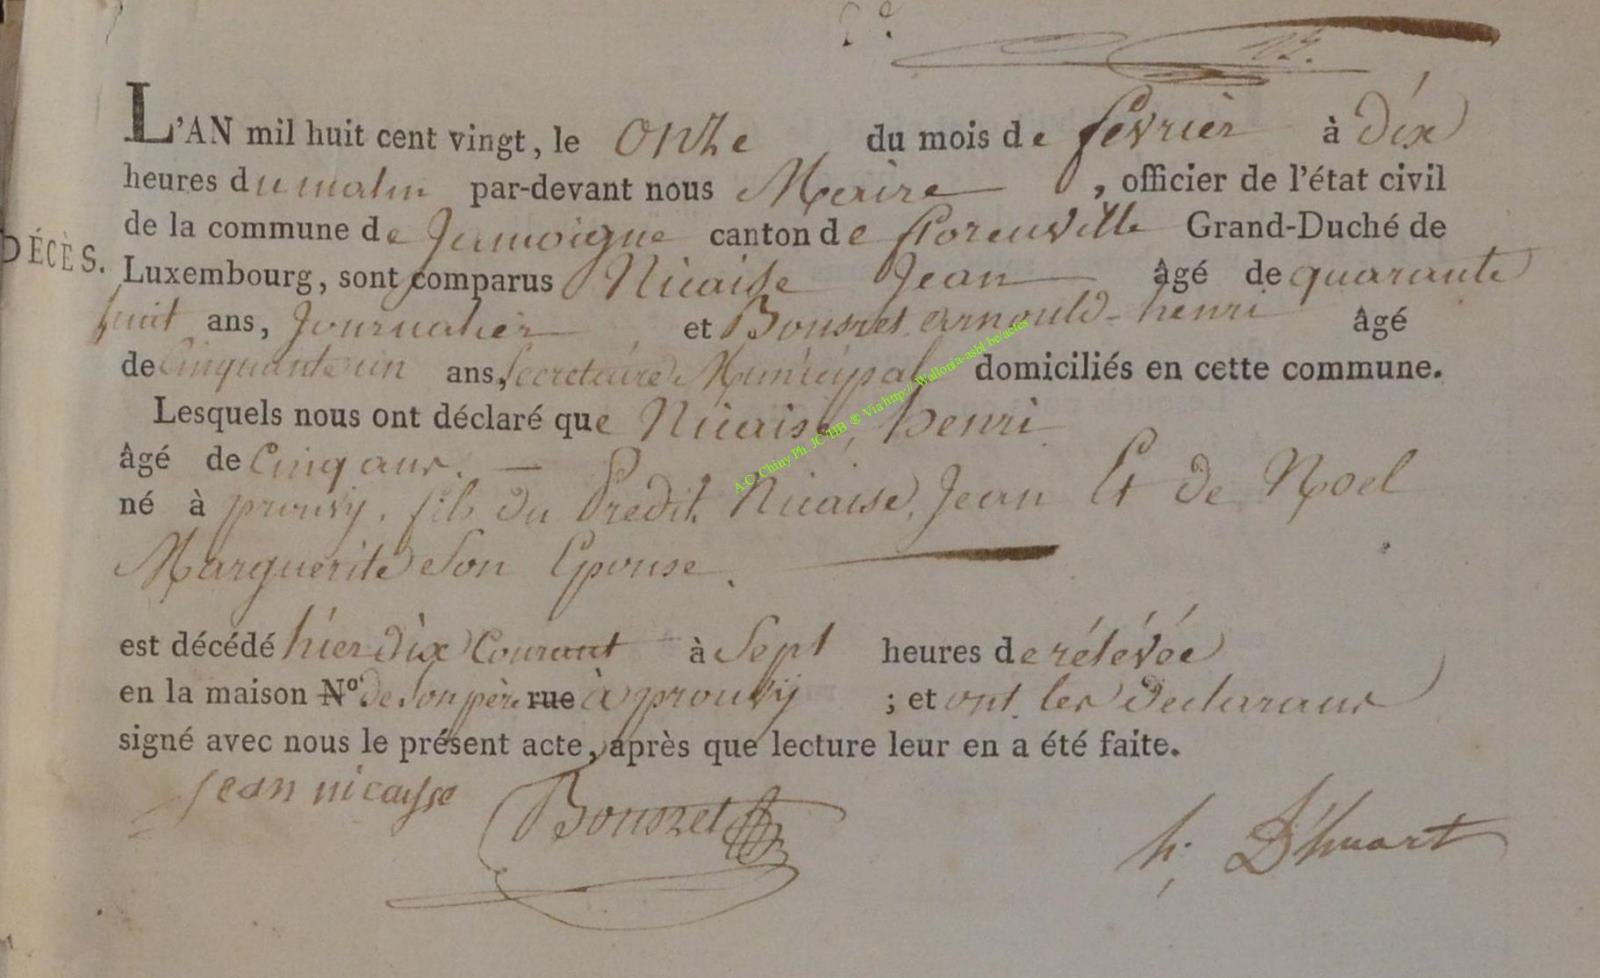 2e.
L'AN mil huit cent vingt, le onze du mois de fevrièr à dix
heures du matin par-devant nous Maire, officier de l'état civil
de la commune de Jamoigne canton de florenville Grand-Duché de
DÉCÈS.
Luxembourg, sont comparus Nicaise Jean âgé de quarante
huit ans, Journalier et Bousret, arnould-henri âgé
de Cinquante un ans, Secretaire Municipal domiciliés en cette commune.
Lesquels nous ont déclaré que Nicaise, henri
âgé de Cinq ans. —
né à prouvy, fils du Predit, Nicaise, Jean Et de Noel
Marguerite Son Epouse.
est décédé hier dix Courant à Sept heures de rélévée
en la maison N° de Son père rue à prouvy ; et ont les declarans
signé avec nous le présent acte, après que lecture leur en a été faite.
jean nicaysse
Bousret
h; D'huart
A.C. Chiny Ph. JC HB © Via http://Wallonia-asbl.be/actes